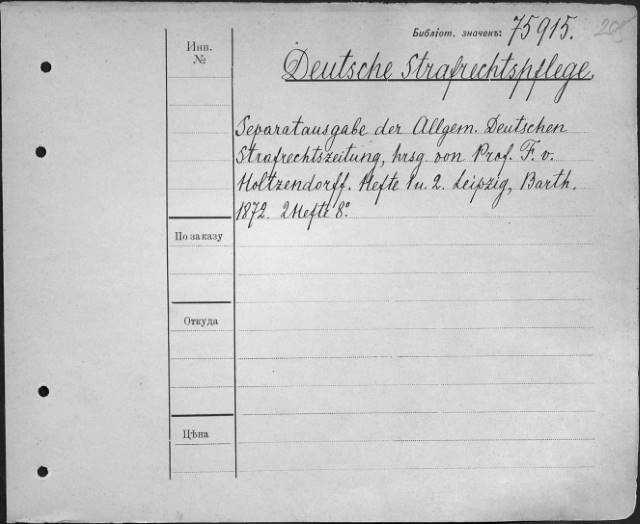 Библіот. значекъ: 75915.
205
Инв.
№
Deutsche Strafrechtspflege.
Separatausgabe der Allgem. Deutschen
Strafrechtszeitung, hrsg. von Prof. F. v.
Holtzendorff. Hefte 1 u. 2. Leipzig, Barth.
1872. 2 Hefte 8º
По заказу
Откуда
Цѣна